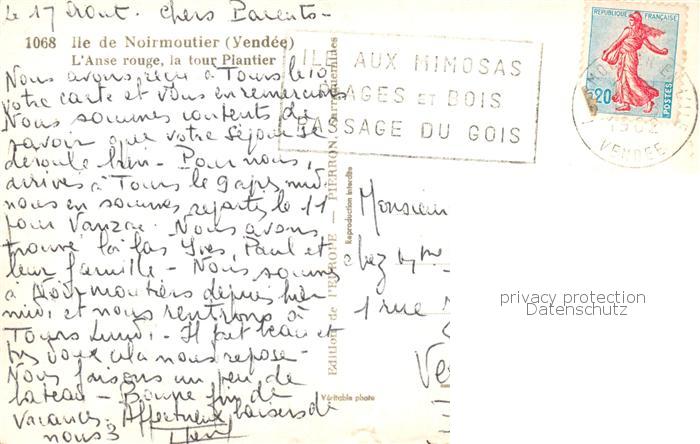 le 17 Août. Chers Parents -
1068 Ile de Noirmoutier (Vendée)
L'Anse rouge, la tour Plantier
Nous avons reçu à Tours le 10
votre carte et vous en remercions
Nous sommes contents de
savoir que votre séjour se
déroule bien - Pour nous,
arrivés à Tours le 9 après midi
nous en sommes repartis le 11
pour Vanzac. Nous avons
trouvé là bas Yves, Paul et
leur famille - Nous sommes
à Noirmoutiers depuis hier
midi et nous rentrons à
Tours Lundi - Il fait beau et
cela nous repose -
Nous faisons un peu de
bateau - Bonne fin de
Vacances. Affectueux baisers de
nous 3
Edition de l'EUROPE - PIERRON
Reproduction interdite
Véritable photo
ILE AUX MIMOSAS
PLAGES ET BOIS
PASSAGE DU GOIS
REPUBLIQUE FRANÇAISE
0,20
POSTES
VENDEE
Monsieur
chez Mme
1 rue
privacy protection
Datenschutz